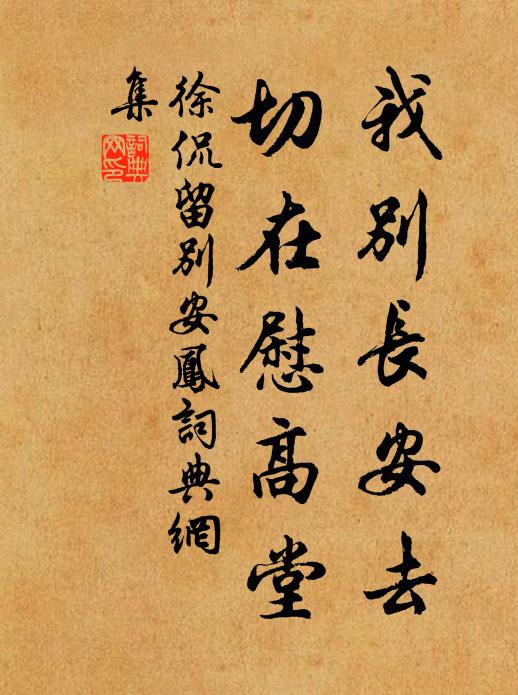 我別長安去
切在慰高堂
徐侃留別安鳳詞典網
集
詞典網印